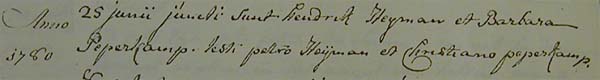 Anno 25 junii juncti sunt Hendrik Heyman et Barbara
1780 Peperkamp. testi petro Heijman et Christiano peperkamp.